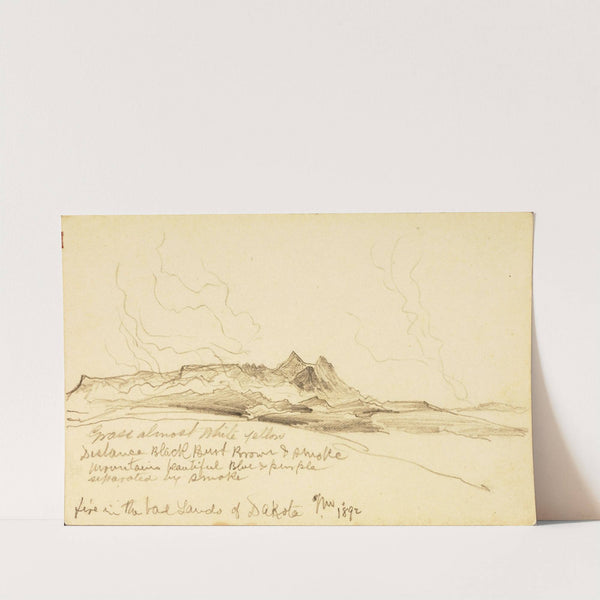 Grass almost White yellow
Distance Black Burt Brown & smoke
mountains beautiful Blue & purple
separated by smoke
fire in the bad Lands of Dakota TM 1892